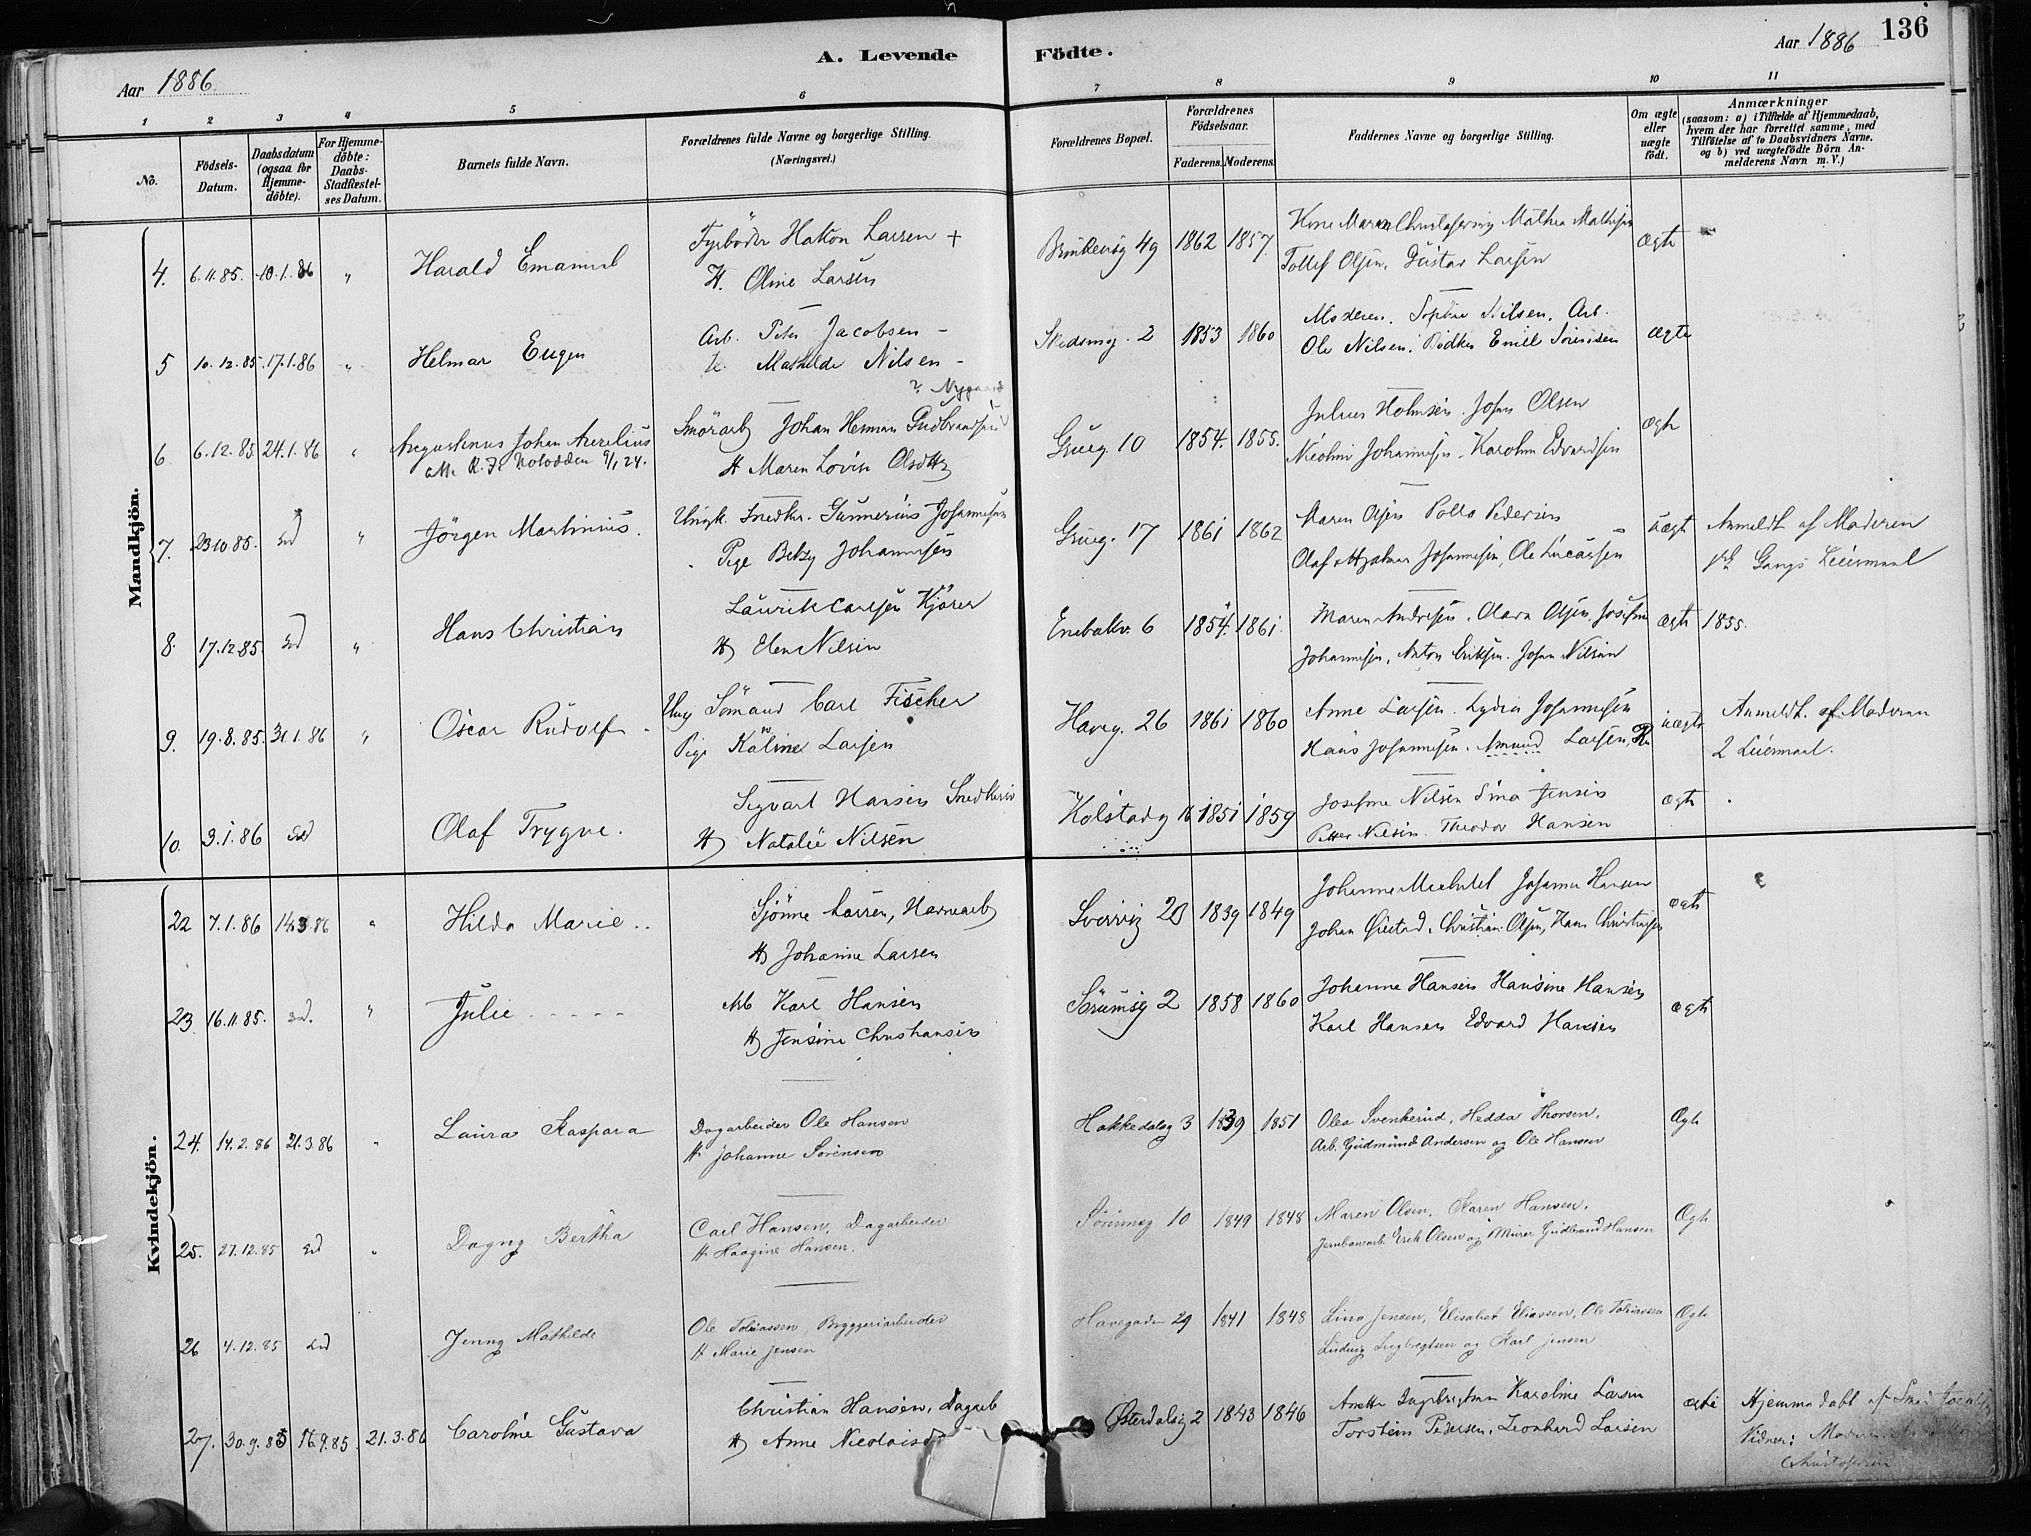 A. Levende Födte.
136
Aar 1886.
Aar 1886
1 2 3 4 5 6 7 8 9 10 11
No.
Födsels-Datum.
Daabsdatum (ogsaa for Hjemme-döbte).
For Hjemme-döbte: Daabs-Stadfæstel-ses Datum.
Barnets fulde Navn.
Forældrenes fulde Navne og borgerlige Stilling.
(Næringsvei.)
Forældrenes Bopæl.
Forældrenes Födselsaar.
Faderens. Moderens.
Faddernes Navne og borgerlige Stilling.
Om ægte eller uægte födt.
Anmærkninger
(saasom: a) i Tilfælde af Hjemmedaab,
hvem der har forrettet samme, med
Tilföielse af to Daabsvidners Navne.
og b) ved uægtefödte Börn An-
melderens Navn m. V.)
Mandkjön.
Fyrböder Hakon Larsen +
4. 6.11.85. 10.1.86 " Harald Emanuel
H. Oline Larsen
Brinkensg 49 1862 1857. Kone Maren Christofersen, Mathea Mathisen
Tollef Olsen, Gustav Larsen ægte
Arb. Peter Jacobsen -
5 10.12.85. 17.1.86 " Helmar Eugen
H. Mathilde Nilsen -
Skedsmog. 2 1853 1860 Moderen. Sophie Nilsen, Arb.
Ole Nilsen, Bödker Emil Sörensen ægte
? Nygaard
Johan Herman Gudbrandsen
6. 6.12.85 24.1.86 " Augustinus Johan Aurelius
H Maren Lovise Olsdtr
Grueg. 10 1854. 1855. Julius Holmsen. Johan Olsen
Nicoline Johannesen. Karoline Edvardsen ægte
Ungk. Snedker. Gunnerius Johannesen
7. 23.10.85. Ed " Jörgen Martinius.
Pige Betzy Johannesen
Grueg. 17 1861 1862 Maren Olsen Polla Pedersen
Olaf Hjalmar Johannesen, Ole Lucassen uægte Anmeldt af Moderen
Gangs Leiermaal
Laurits Carlsen Kjörer
8. 17.12.85. Ed " Hans Christian
H Elen Nilsen
Enebakv. 6 1854. 1861. Maren Andresen, Olava Olsen, Josefine
Johannesen, Anton Eriksen. Johan Nilsen ægte 1855.
Ung Sömand Carl Fischer
9. 19.8.85. 31.1.86 " Oscar Rudolf
Pige Kaline Larsen
Haveg. 26 1861 1860 Anne Larsen. Lydia Johannesen
Hans Johannesen. Amund Larsen, uægte Anmeldt af Moderen
2 Leiermaal.
Sigvart Hansen Snedker
10. 3.1.86 Ed Olaf Trygve.
H Natalie Nilsen
Kolstadg 1851 1859 Josefine Nilsen Sina Jensen
Petter Nilsen. Theodor Hansen ægte
Kvindekjön.
Sjönne Larsen, Havnearb
22 7.1.86 14.3.86 " Hilda Marie..
H Johanne Larsen
Sverrig 20 1839 1849 Johanne Michelet Johanne Hansen
Johan Öiestad, Christian Olsen, Hans Christiansen ægte
Arb Karl Hansen
23 16.11.85. Ed. " Julie
H Jensine Christiansen
Sörumsg 2 1858 1860 Johanne Hansen Hansine Hansen
Karl Hansen Edvard Hansen ægte
24. 14.2.86 21.3.86 " Laura Kaspara
Dagarbeider Ole Hansen
H Johanne Sörensen
Hakkedalsg 3 1839 1851 Olea Svenkerud, Hedda Thorsen,
Arb. Gudmund Andersen og Ole Hansen Ægte
25. 27.12.85 Ed " Dagny Bertha
Carl Hansen, Dagarbeider
H Haagine Hansen.
Sörumsg 10 1849 1848 Maren Olsen, Karen Hansen,
Jernbanearb. Erik Olsen og Murer Gudbrand Hansen Ægte
26 4.12.85 Ed Jenny Mathilde
Ole Tobiassen, Bryggeriarbeider
H Marie Jensen
Havegaden 29 1841 1848 Lina Jensen, Elisabet Eliassen, Ole Tobiassen
Ludvig Ingbregtsen og Karl Jensen Ægte
Christian Hansen, Dagarb
27. 30.9.85 16.9.85 21.3.86 Caroline Gustava
H Anne Nicolaisd
Österdalsg 2 1843 1846 Anette Ingebrigtsen Karoline Larsen
Torstein Pedersen, Leonhard Larsen ægte Hjemmedöbt af
Vidner: Moderen
Christofersen